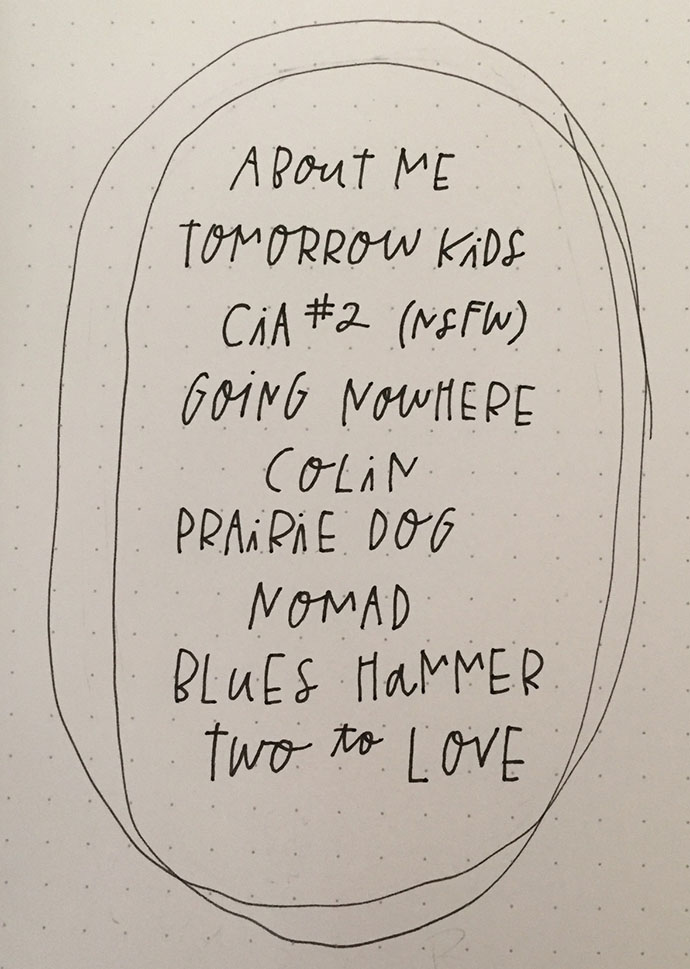 ABOUT ME
TOMORROW KiDS
CiA #2 (NSFW)
GOiNG NOWHERE
COLiN
PRAiRiE DOG
NOMAD
BLUES HaMMER
TWO to LOVE